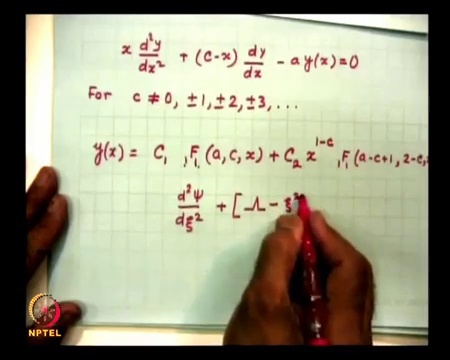 x d²y/dx² + (c-x) dy/dx - a y(x) = 0
For c ≠ 0, ±1, ±2, ±3, ...
y(x) = C₁ ₁F₁(a, c, x) + C₂ x^{1-c} ₁F₁(a-c+1, 2-c,
d²Ψ/dξ² + [Λ - ξ²
NPTEL